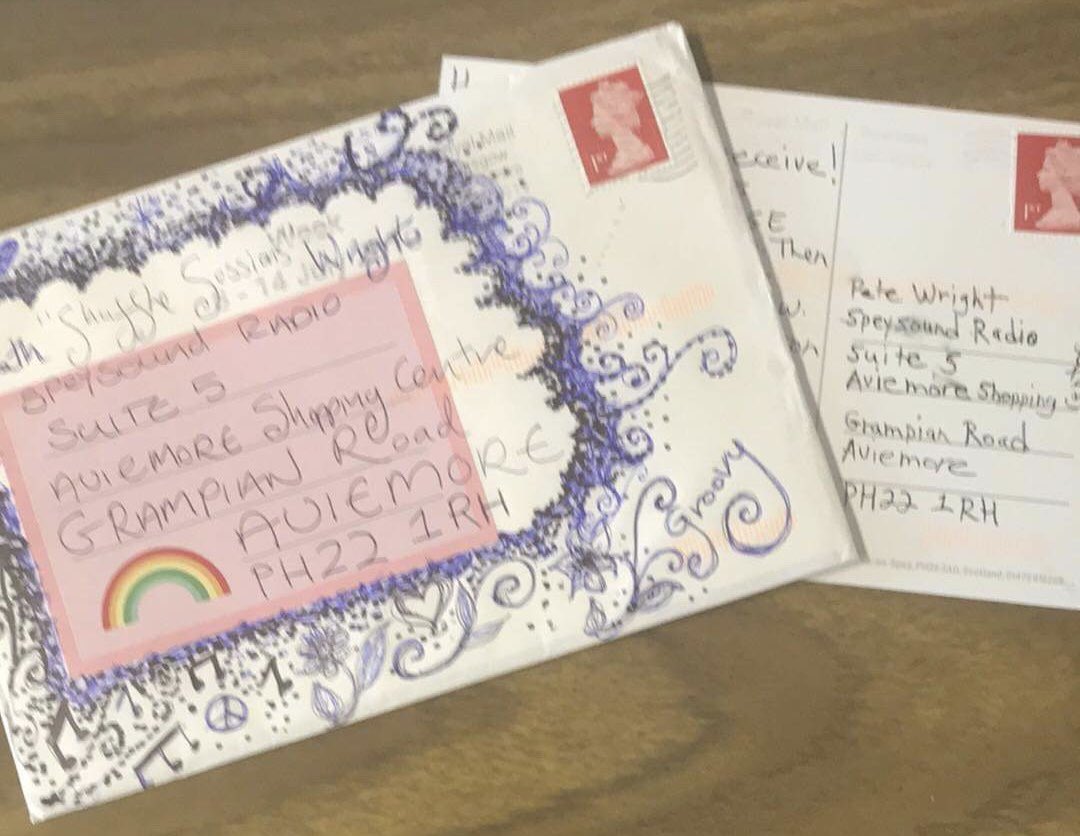 "Shuggle Sessions" Wright
SPEYSOUND RADIO
SUITE 5
AVIEMORE Shopping Centre
GRAMPIAN Road
AVIEMORE
PH22 1RH
Groovy
1ST
eceive!
Then
w.
Pete Wright
Speysound Radio
Suite 5
Aviemore Shopping
Grampian Road
Aviemore
PH22 1RH
1ST